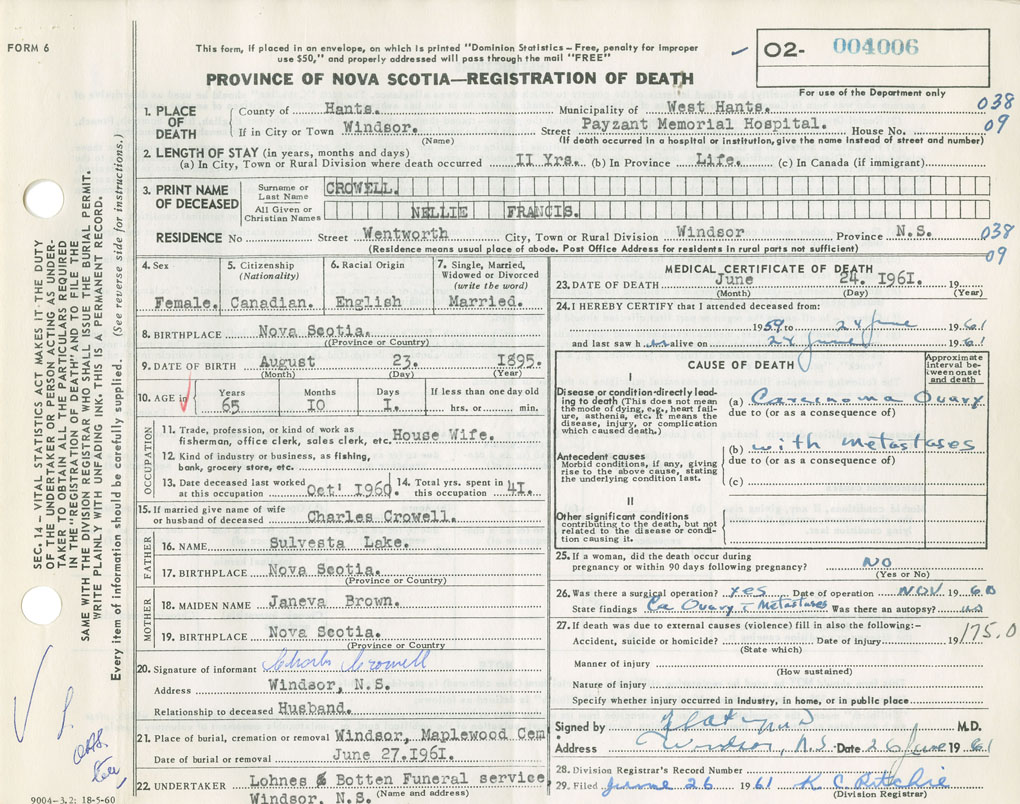 FORM 6
This form, if placed in an envelope, on which is printed "Dominion Statistics – Free, penalty for improper
use $50," and properly addressed will pass through the mail "FREE"
O2- 004006
PROVINCE OF NOVA SCOTIA—REGISTRATION OF DEATH
For use of the Department only
1. PLACE OF DEATH
County of Hants. Municipality of West Hants. 038
If in City or Town Windsor. Street Payzant Memorial Hospital. House No. 09
(Name) (If death occurred in a hospital or institution, give the name instead of street and number)
2. LENGTH OF STAY (in years, months and days)
(a) In City, Town or Rural Division where death occurred II Yrs. (b) In Province Life. (c) In Canada (if immigrant)
3. PRINT NAME OF DECEASED
Surname or Last Name CROWELL.
All Given or Christian Names NELLIE FRANCIS.
RESIDENCE No Street Wentworth City, Town or Rural Division Windsor Province N.S. 038
(Residence means usual place of abode. Post Office Address for residents in rural parts not sufficient) 09
4. Sex Female.
5. Citizenship (Nationality) Canadian.
6. Racial Origin English
7. Single, Married, Widowed or Divorced (write the word) Married.
8. BIRTHPLACE Nova Scotia.
(Province or Country)
9. DATE OF BIRTH August 23. I895.
(Month) (Day) (Year)
10. AGE in Years 65 Months IO Days I. If less than one day old hrs. or min.
OCCUPATION
11. Trade, profession, or kind of work as
fisherman, office clerk, sales clerk, etc. House Wife.
12. Kind of industry or business, as fishing,
bank, grocery store, etc.
13. Date deceased last worked
at this occupation Oct' I960.
14. Total yrs. spent in
this occupation 4I.
15. If married give name of wife
or husband of deceased Charles Crowell.
FATHER
16. NAME Sulvesta Lake.
17. BIRTHPLACE Nova Scotia.
(Province or Country)
MOTHER
18. MAIDEN NAME Janeva Brown.
19. BIRTHPLACE Nova Scotia.
(Province or Country
20. Signature of informant Charles Crowell
Address Windsor, N.S.
Relationship to deceased Husband.
21. Place of burial, cremation or removal Windsor, Maplewood Cem
Date of burial or removal June 27.I96I.
22. UNDERTAKER Lohnes & Botten Funeral service,
Windsor. N.S. (Name and address)
MEDICAL CERTIFICATE OF DEATH
23. DATE OF DEATH June 24. I96I. 19
(Month) (Day) (Year)
24. I HEREBY CERTIFY that I attended deceased from:
1959 to 24 June 1961
and last saw her alive on 24 June 1961
CAUSE OF DEATH
Approximate interval between onset and death
I
Disease or condition directly leading to death (This does not mean the mode of dying, e.g., heart failure, asthenia, etc. It means the disease, injury, or complication which caused death.)
(a) Carcinoma Ovary
due to (or as a consequence of)
Antecedent causes
Morbid conditions, if any, giving rise to the above cause, stating the underlying condition last.
(b) with metastases
due to (or as a consequence of)
(c)
II
Other significant conditions
contributing to the death, but not related to the disease or condition causing it.
25. If a woman, did the death occur during
pregnancy or within 90 days following pregnancy? NO
(Yes or No)
26. Was there a surgical operation? yes Date of operation NOV. 1960
State findings Ca Ovary c Metastases Was there an autopsy? no
27. If death was due to external causes (violence) fill in also the following:–
Accident, suicide or homicide? Date of injury 19 175.0
(State which)
Manner of injury
(How sustained)
Nature of injury
Specify whether injury occurred in Industry, in home, or in public place
Signed by M.D.
Address Windsor, N.S. Date 26 June 1961
28. Division Registrar's Record Number
29. Filed June 26 1961 K C Ritchie
(Division Registrar)
SEC. 14 – VITAL STATISTICS ACT MAKES IT THE DUTY
OF THE UNDERTAKER OR PERSON ACTING AS UNDER-
TAKER TO OBTAIN ALL THE PARTICULARS REQUIRED
IN THE "REGISTRATION OF DEATH" AND TO FILE THE
SAME WITH THE DIVISION REGISTRAR WHO SHALL ISSUE THE BURIAL PERMIT.
WRITE PLAINLY WITH UNFADING INK. THIS IS A PERMANENT RECORD.
Every item of information should be carefully supplied. (See reverse side for instructions.)
9004–3.2: 18-5-60